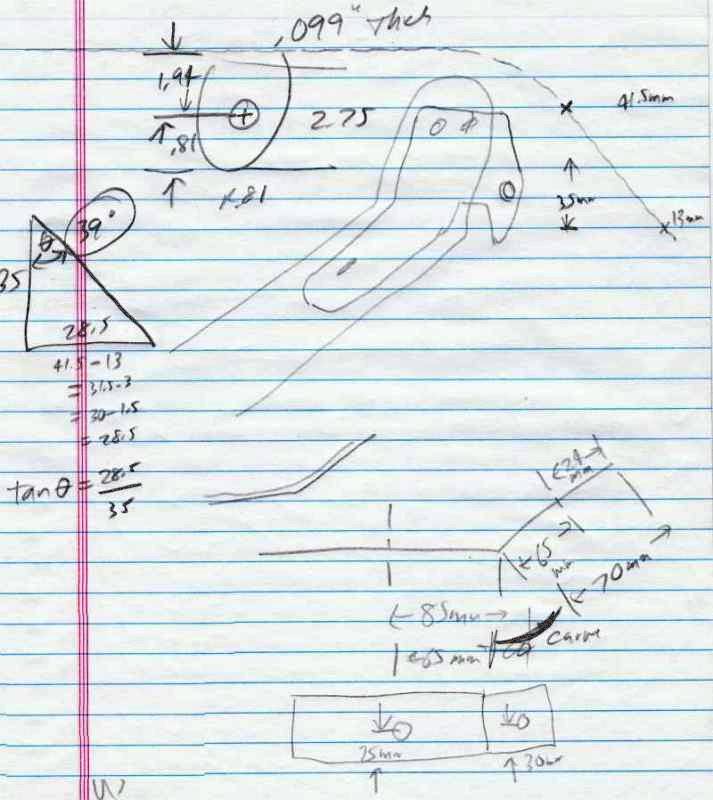 .099" Thck
1.94
.81
2.75
1.81
41.5mm
35mm
13mm
θ
39°
35
28.5
41.5-13
= 31.5-3
= 30-1.5
= 28.5
tan θ = 28.5
35
24
mm
65
mm
70mm
85mm
65mm
curve
25mm
30mm
W